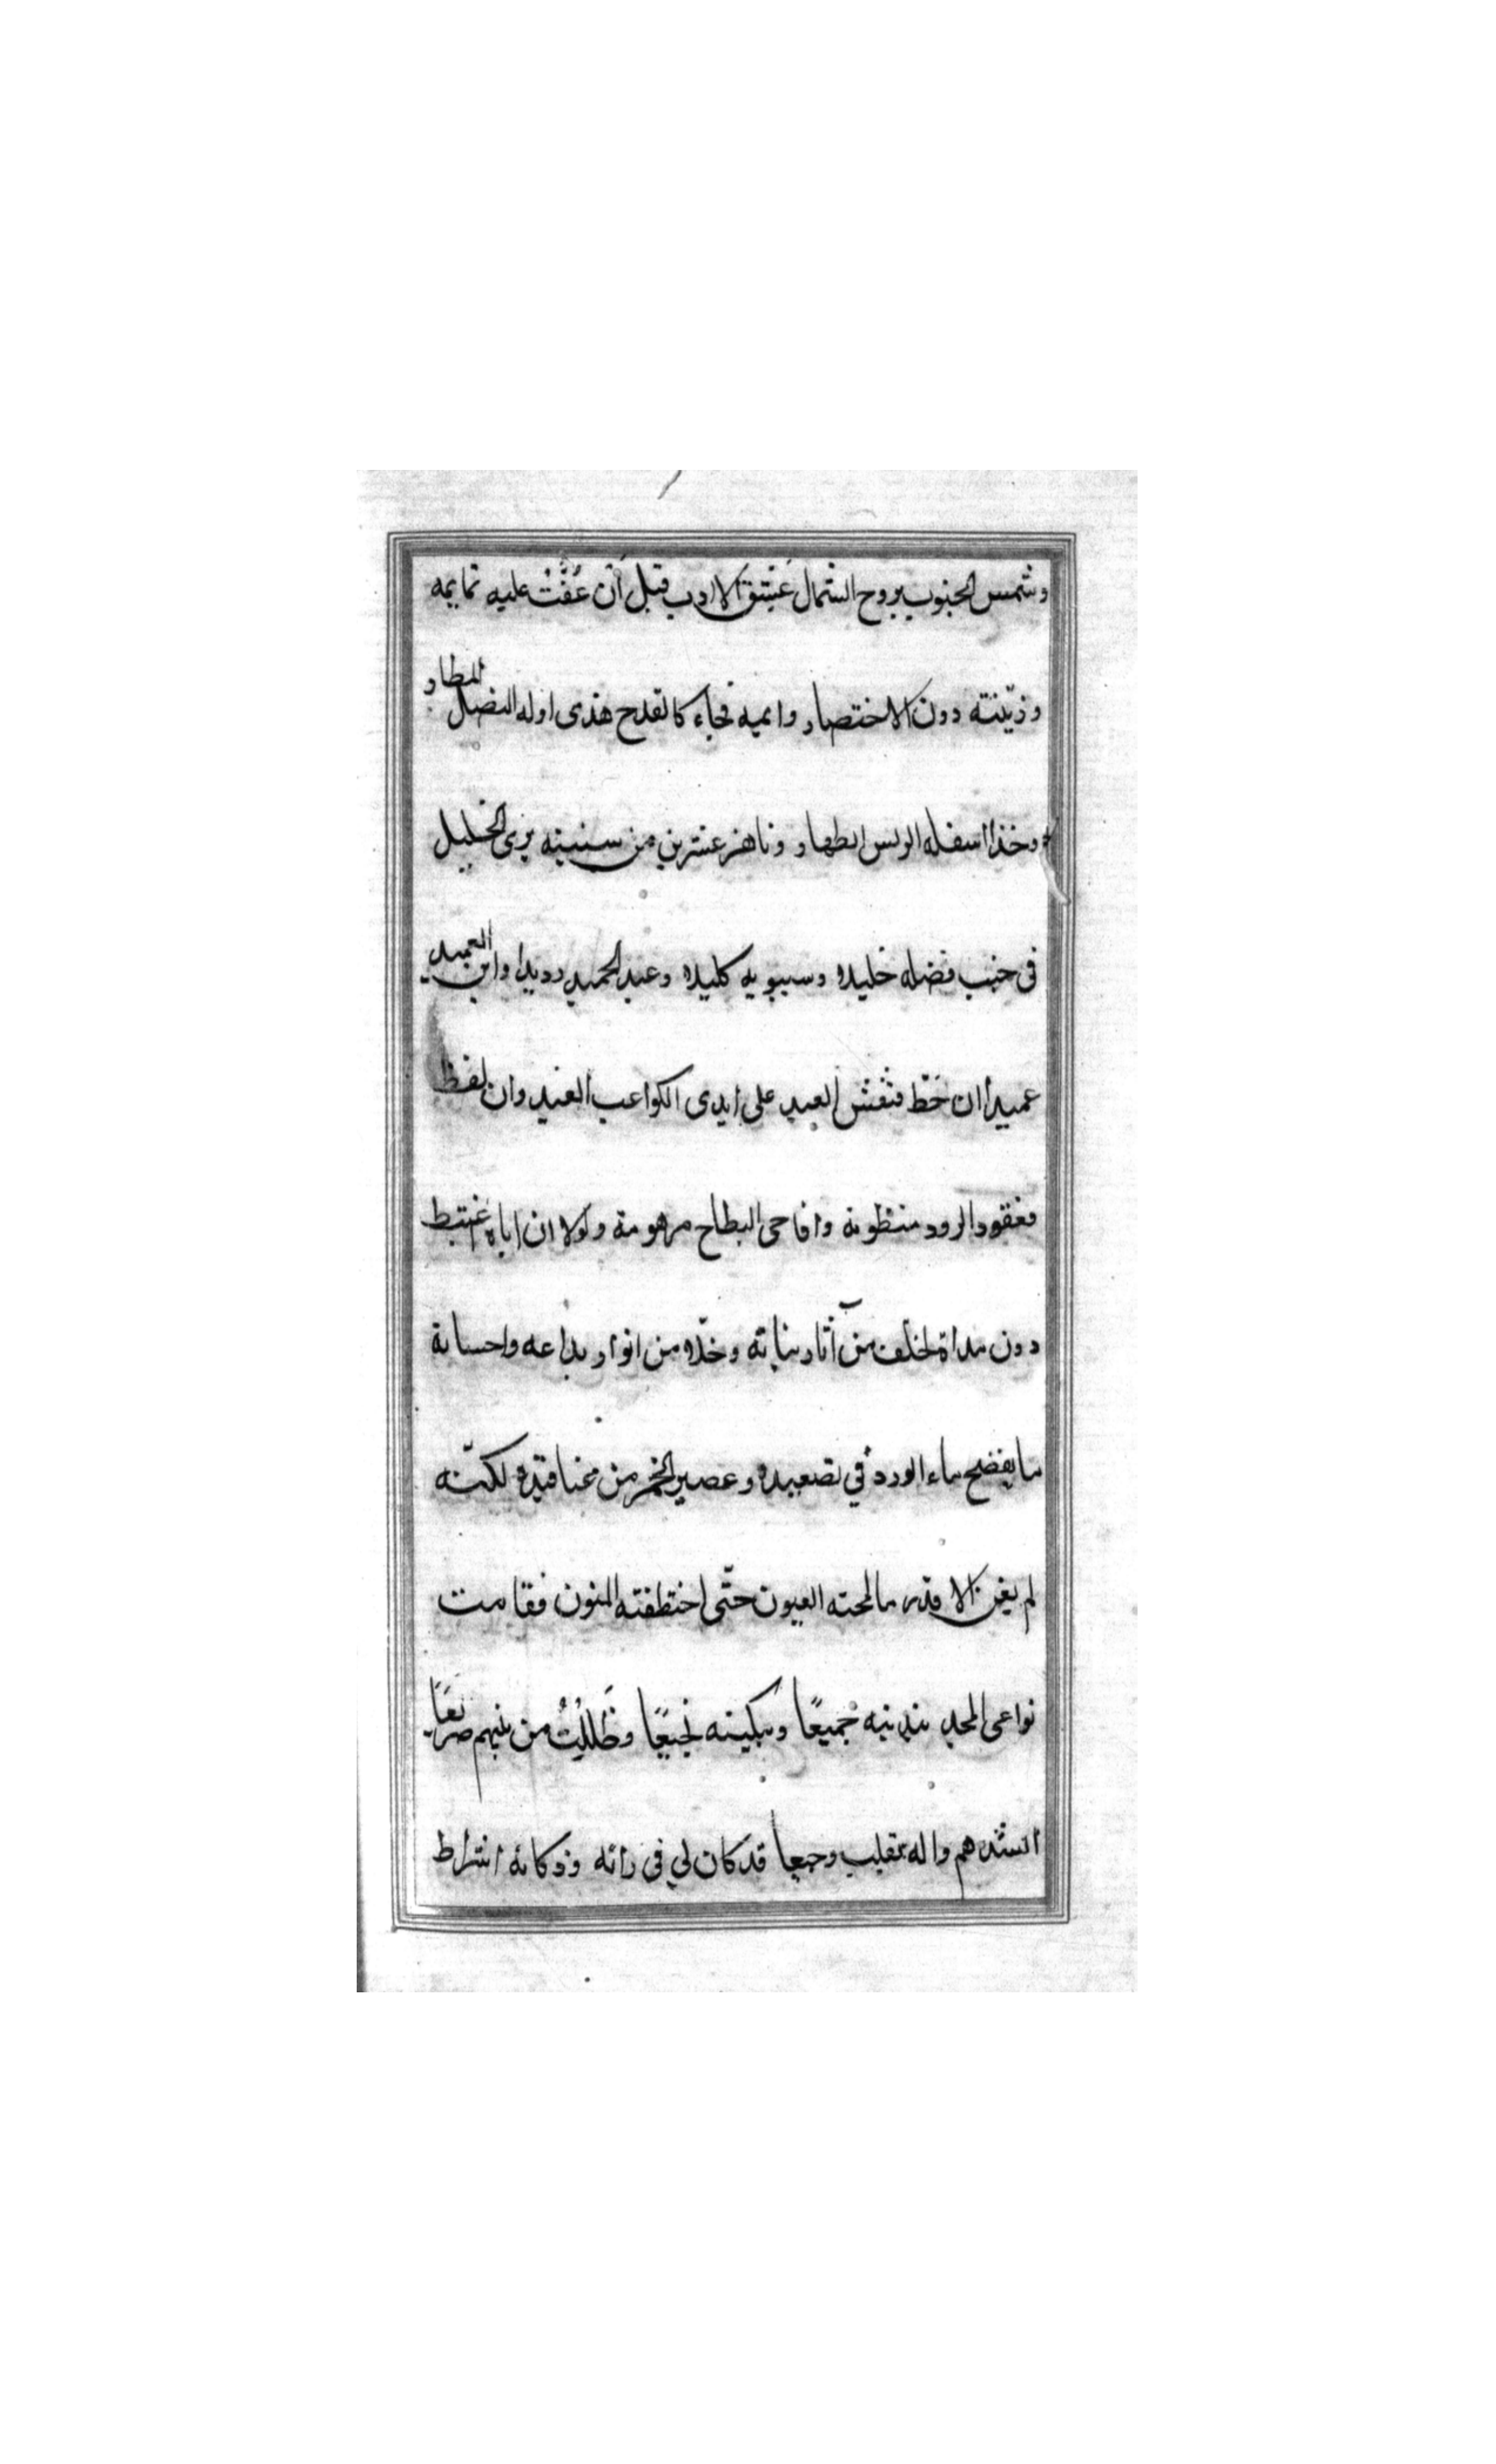 وشمس الجنوب بروح الشمال عشق الادب قبل أن عُقَّتْ عليه تمايمه
وزيّنته دون الاختصار وايمه فجاء كالقدح هذى اوله النضال المطار
وخذا اسفله الريس الطهار وناهز عشرين من سنيته يرى الخليل
فى جنب فضله خليده وسيبويه كليده وعبد الحميد رويدا وابن العميد
عميدا ان خَطّ فنقش العبد على ايدى الكواعب الغيد وان لفظ
فعقود الرود منظومة واقاحى البطاح مرهومة ولولا ان اباه غبتبط
دون مداة لخلف من آثار بنانه وخلّه من انوار بداعه واحسانة
ما يفضح ماء الورد في تصعيده وعصير الخمر من عناقيده لكنّه
لم يغن الا قدر ما لمحته العيون حتّى اختطفته المنون فقامت
نواعى المجد يندبنه جميعًا ويبكينه نجيعًا وظَلِلْتُ من بينهم صريعًا
انشدهم واله بقلب وجيعا قد كان لي فى رائه وذكائه اشراط